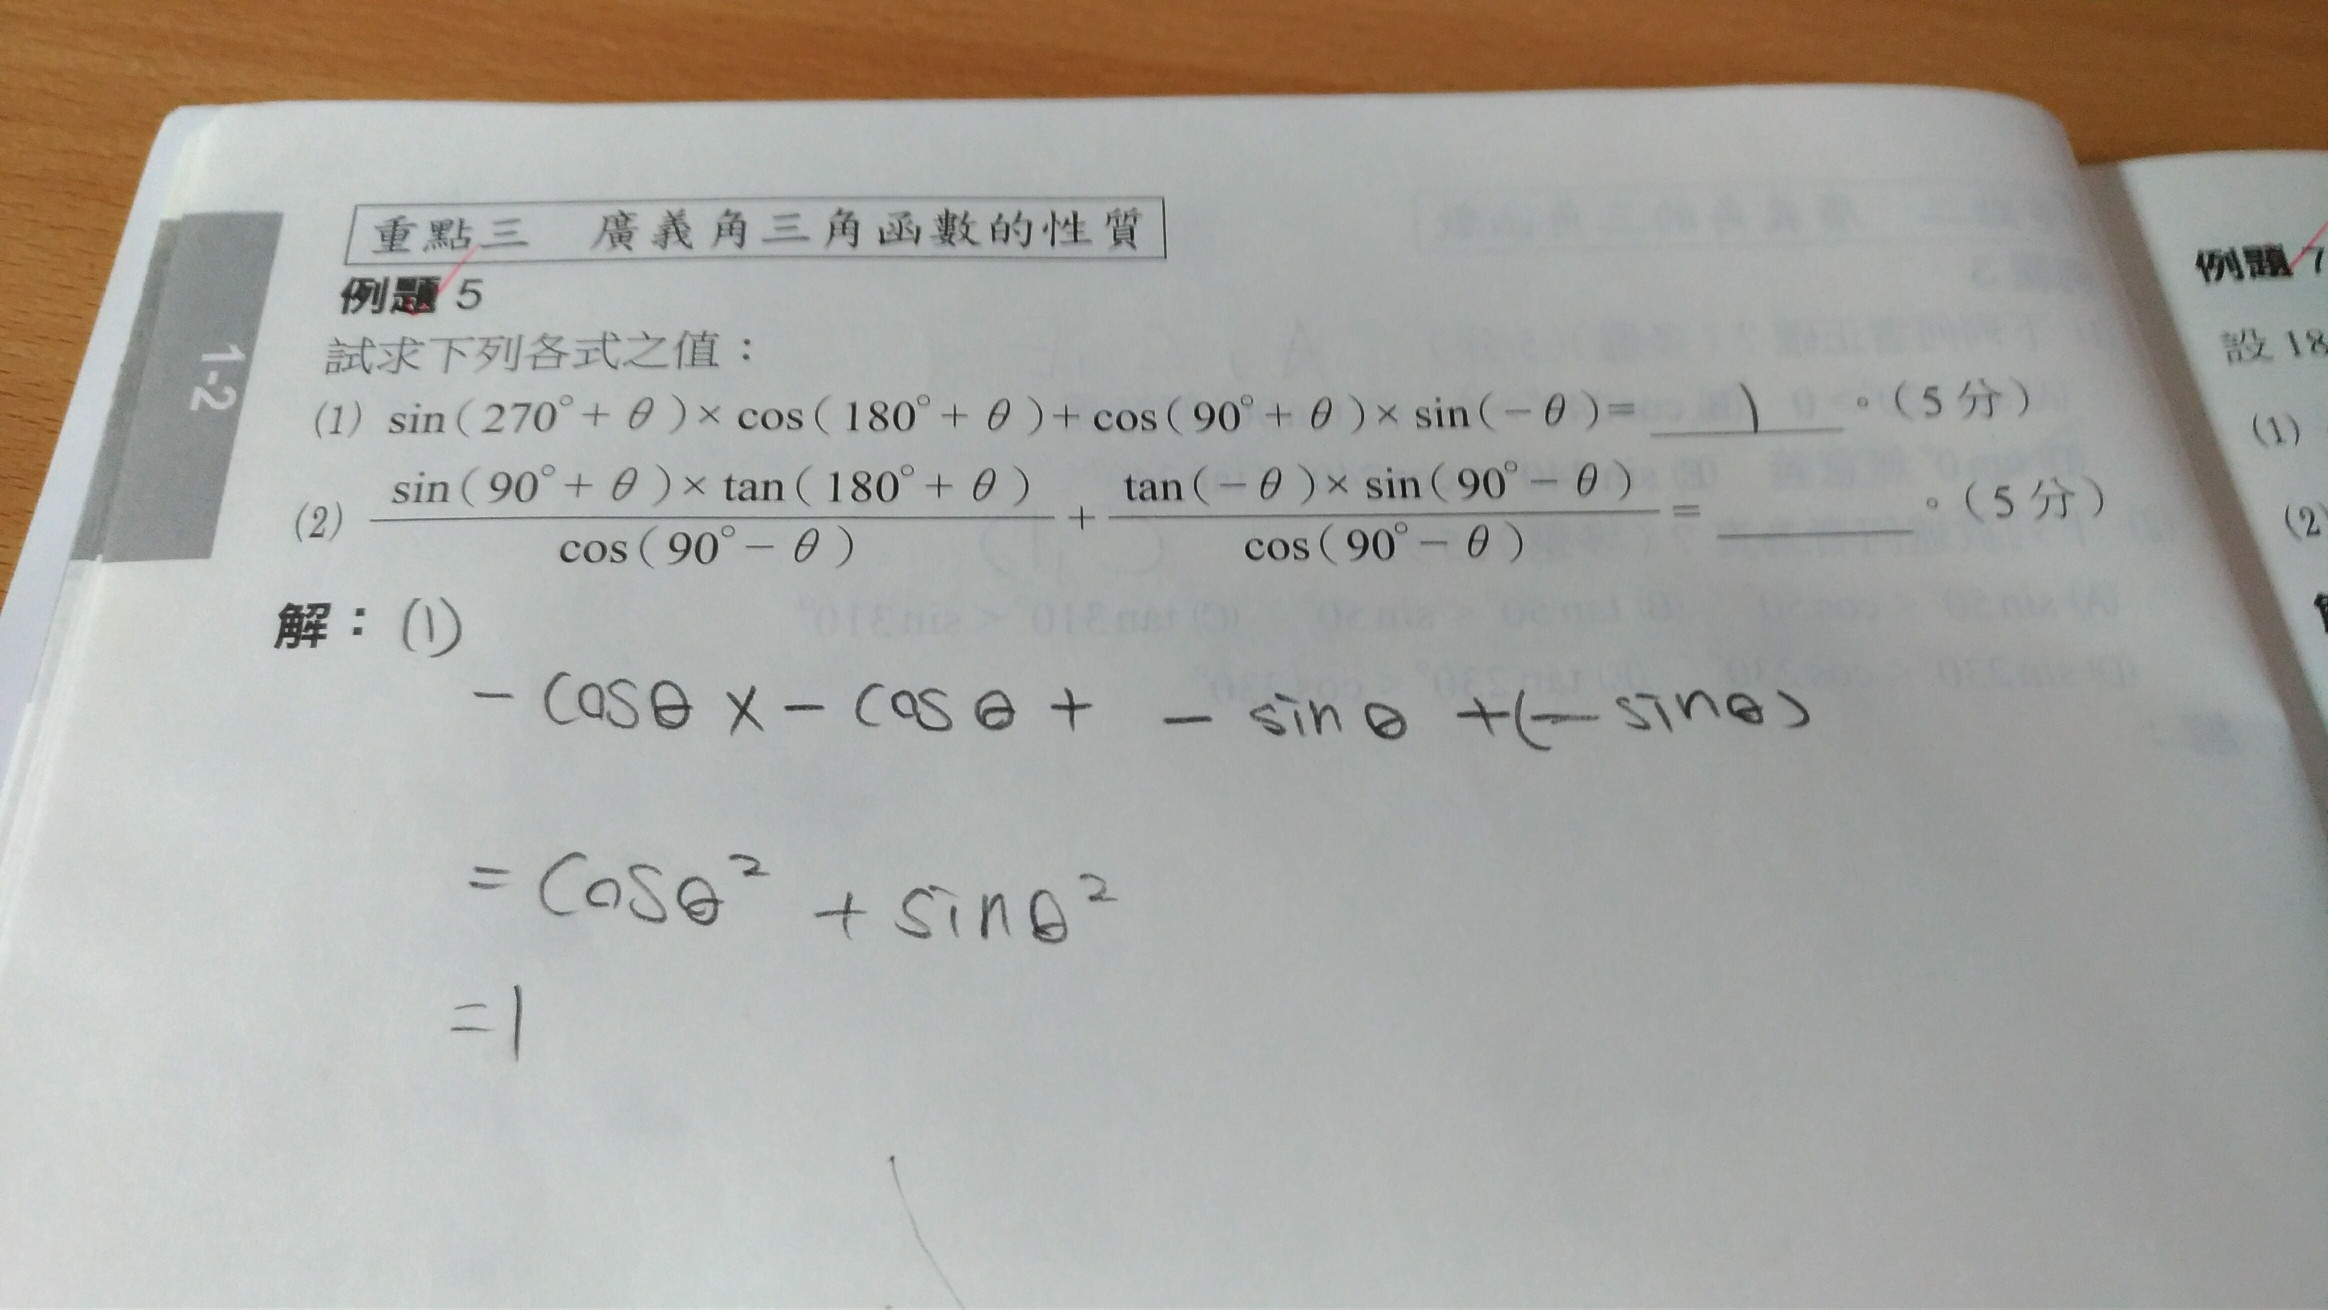 重點三 廣義角三角函數的性質
例題 5
試求下列各式之值：
(1) sin(270°+θ)×cos(180°+θ)+cos(90°+θ)×sin(-θ)= 1 。(5分)
(2) sin(90°+θ)×tan(180°+θ) / cos(90°-θ) + tan(-θ)×sin(90°-θ) / cos(90°-θ) = ______ 。(5分)
解：(1)
- cosθ × - cosθ + - sinθ +(- sinθ)
= cosθ² + sinθ²
=1
1-2
例題 7
設 18
(1)
(2)